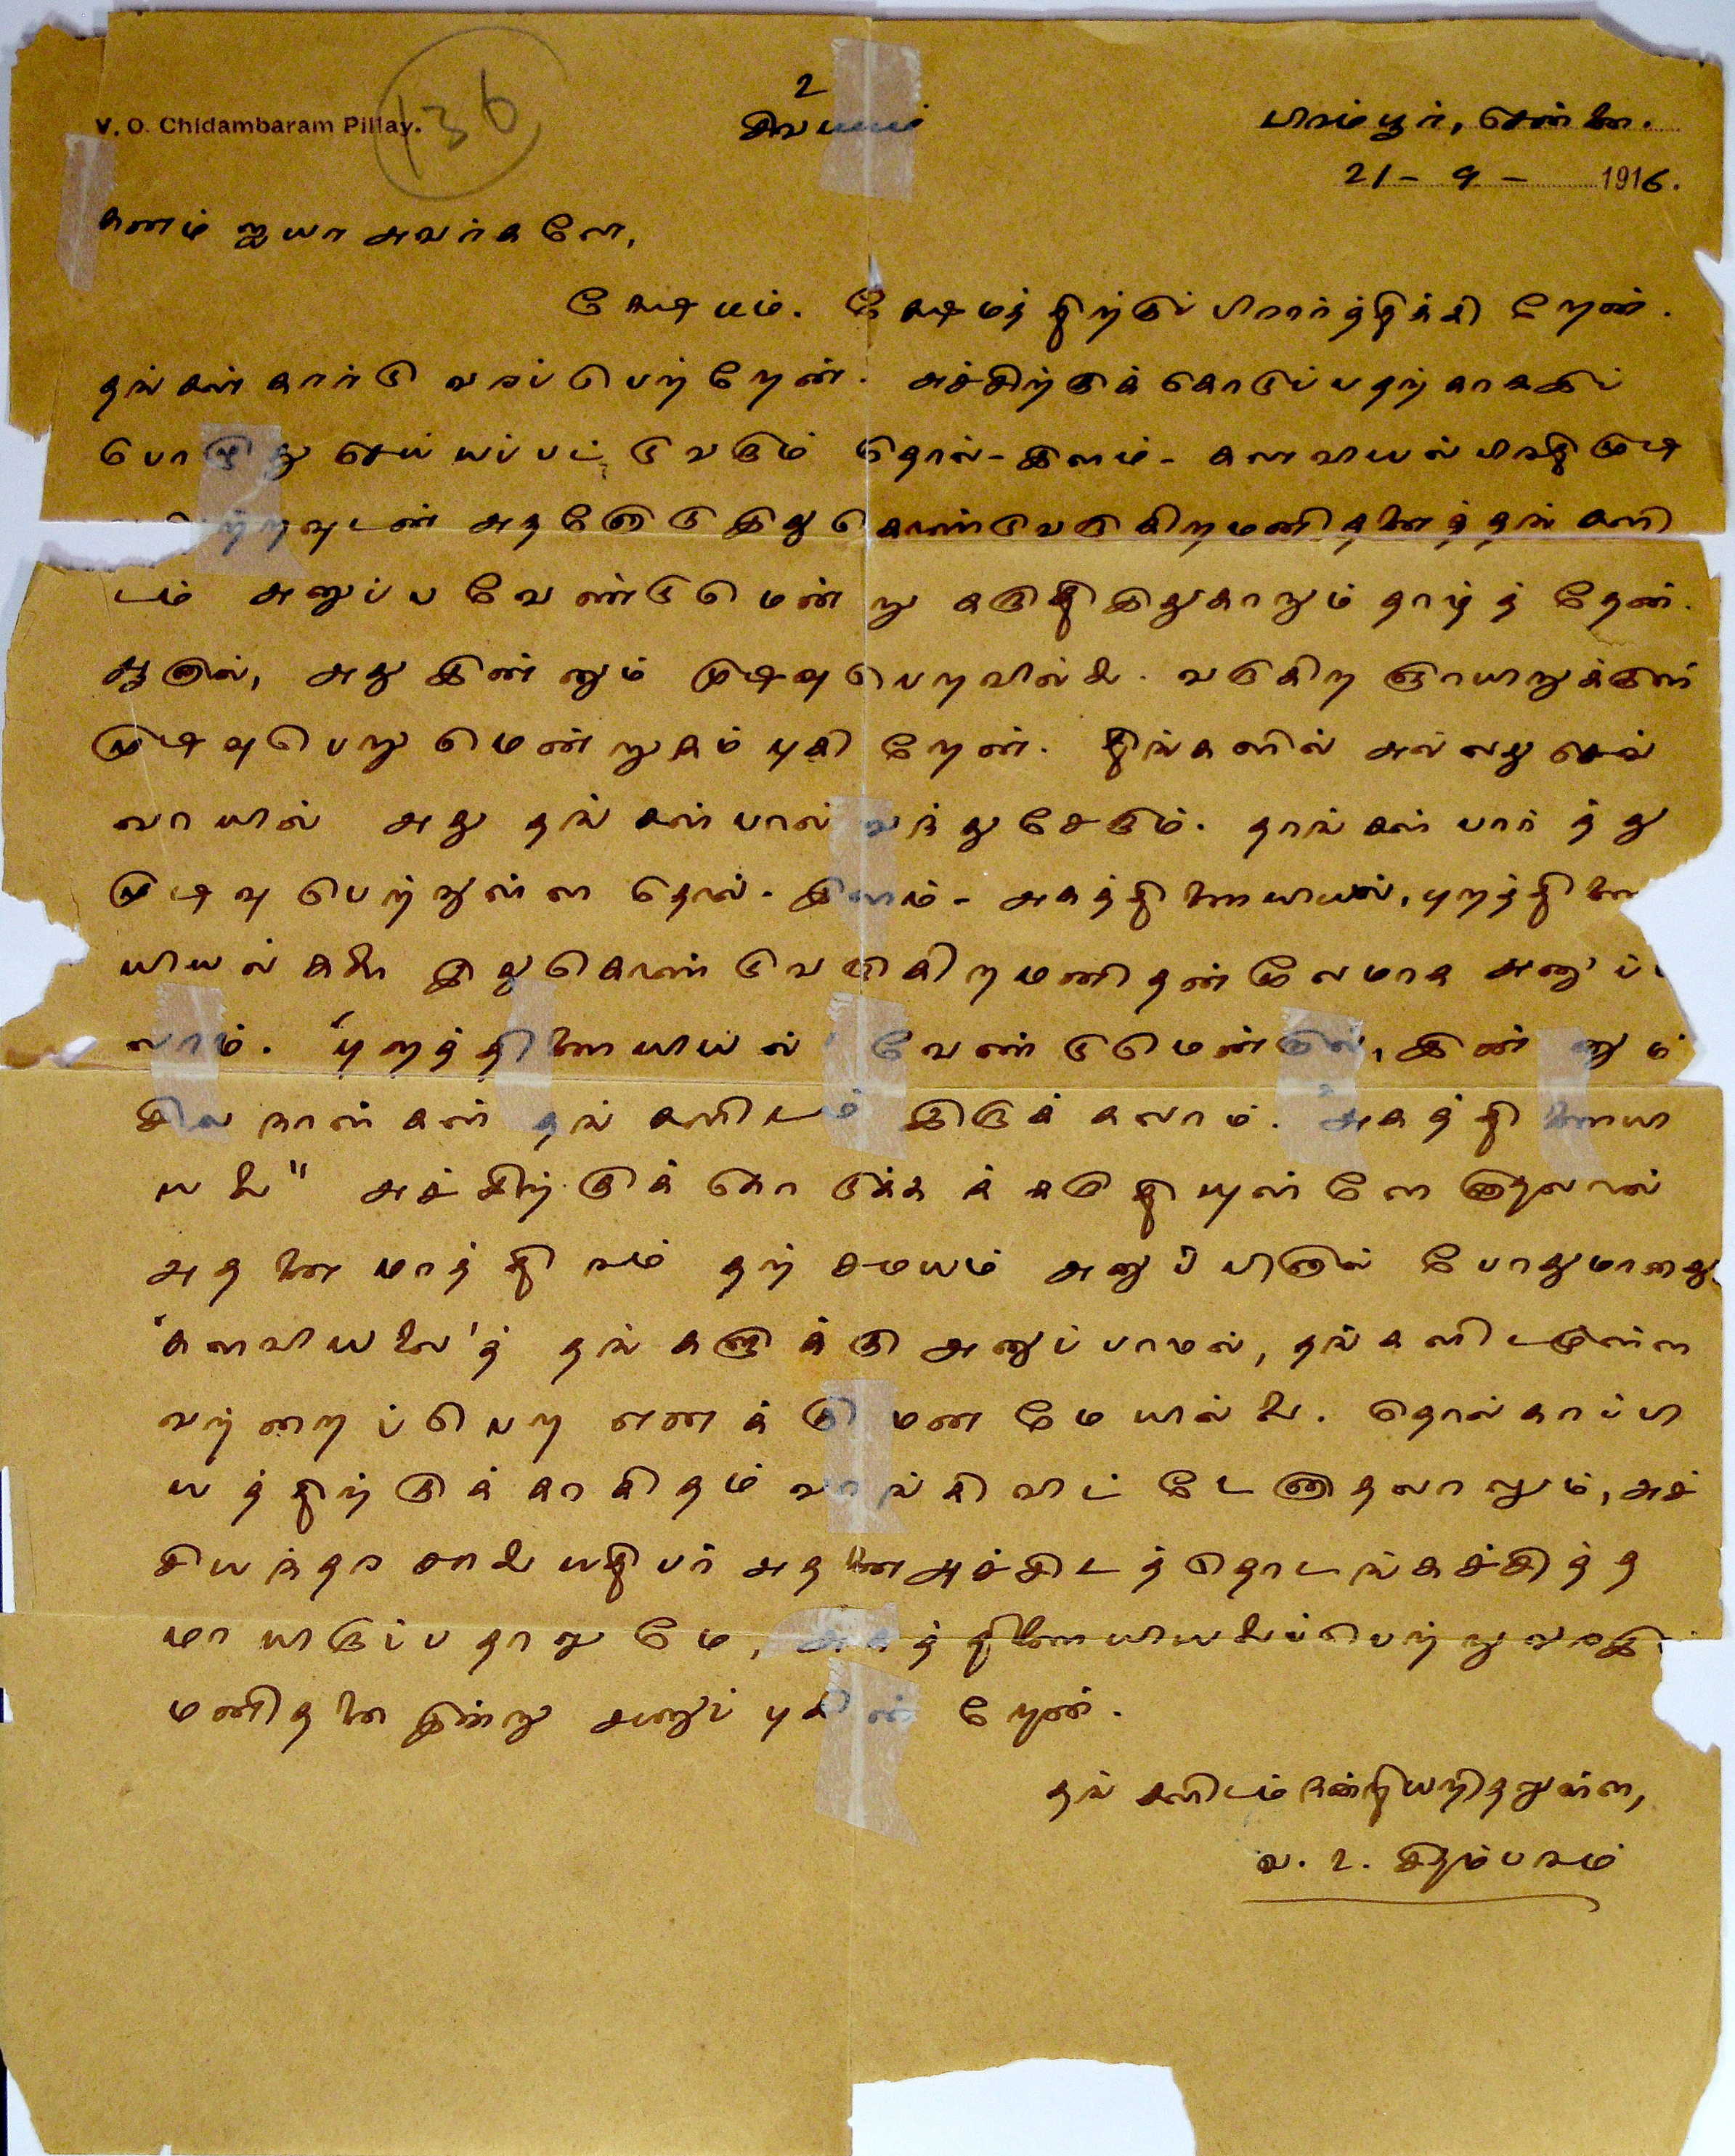 V. O. Chidambaram Pillay.
136
உ
சிவமயம்
பிரம்பூர், சென்னை.
21 - 9 - 1916.
கனம் ஐயா அவர்களே,
க்ஷேமம். க்ஷேமத்திற்குப் பிரார்த்திக்கிறேன்.
தங்கள் கார்டு வரப்பெற்றேன். அச்சிற்குக் கொடுப்பதற்காகஇப்
பொழுது செய்யப்பட்டுவரும் தொல்-இளம்- களவியல் பிரதி முடி
வுடன் அதனோடு இதுகொண்டுவருகிறமனிதனைத் தங்களி
டம் அனுப்பவேண்டுமென்று கருதிஇதுகாறும் தாழ்த்தேன்.
ஆனால், அது இன்னும் முடிவுபெறவில்லை. வருகிற ஞாயிறுக்குள்
முடிவுபெறுமென்றுநம்புகிறேன். திங்களில் அல்லது செவ்
வாயில் அது தங்கள்பால் வந்துசேரும். தாங்கள் பார்த்து
முடிவு பெற்றுள்ள தொல்- இளம்- அகத்திணையியல், புறத்திணை
யியல்களை இதுகொண்டுவருகிறமனிதன்மூலமாக அனுப்ப
லாம். "புறத்திணையியல்" வேண்டுமென்றால், இன்னும்
சில நாள்கள் தங்களிடம் இருக்கலாம். "அகத்திணையி
யலை" அச்சிற்குக் கொடுக்கக்கருதியுள்ளேனாதலால்
அதனைமாத்திரம் தற்சமயம் அனுப்பினால் போதுமானது.
'களவியலை'த் தங்களுக்கு அனுப்பாமல், தங்களிடமுள்ள
வற்றைப்பெற எனக்கு மனமேயில்லை. தொல்காப்பி
யத்திற்குக் காகிதம் வாங்கிவிட்டேனாதலாலும், அச்
சியந்தரசாலையதிபர் அதனைஅச்சிடத்தொடங்கச்சித்த
மாயிருப்பதாலுமே, அகத்திணையியலைப்பெற்றுவரஇ
மனிதனை இன்று அனுப்புகின்றேன்.
தங்களிடம் நன்றியறிதலுள்ள,
வ. உ. சிதம்பரம்